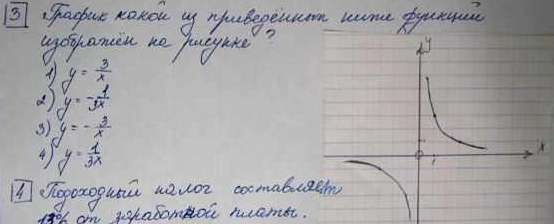 3 График какой из приведённых ниже функций
изображён на рисунке?
1) y = 3/x
2) y = -1/3x
3) y = -3/x
4) y = 1/3x
y
x
1
4 Подоходный налог составляет
13% от заработной платы.